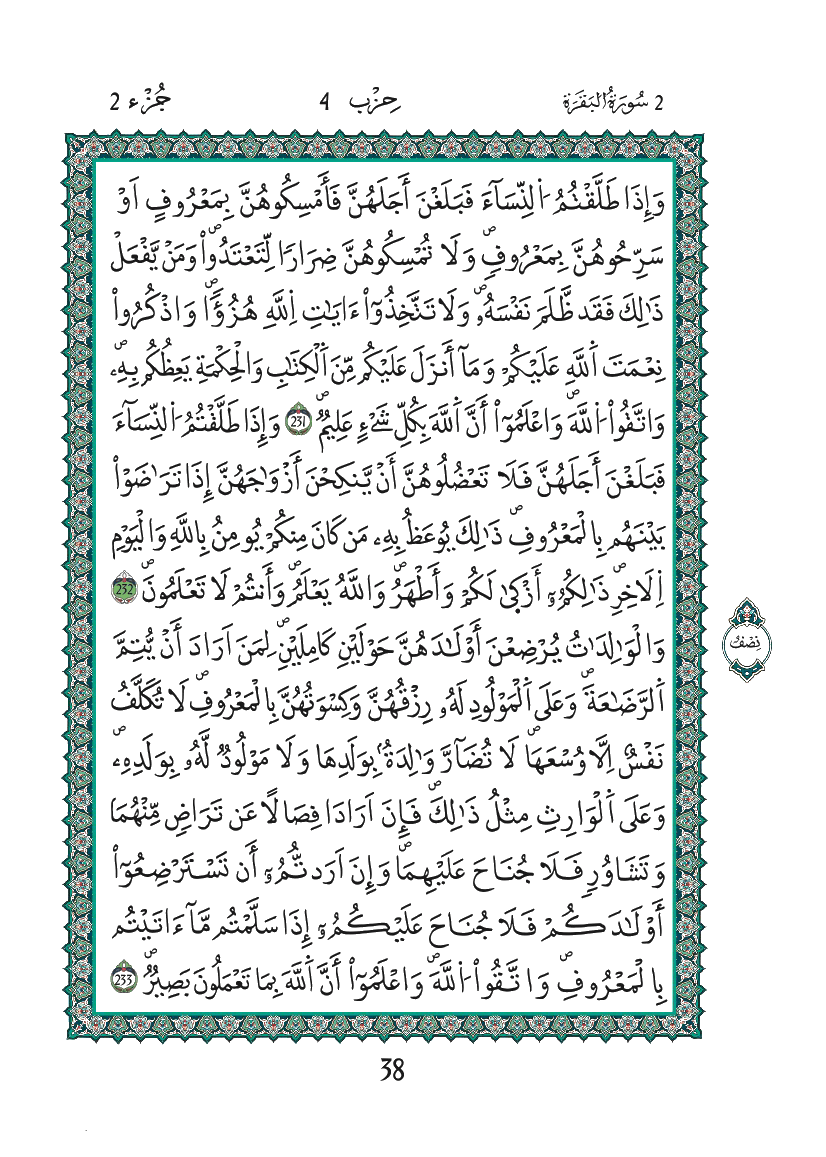 2 سُورَةُ الْبَقَرَة حِزْب 4 جُزْء 2
وَإِذَا طَلَّقْتُمُ اُ۬لنِّسَآءَ فَبَلَغْنَ أَجَلَهُنَّ فَأَمْسِكُوهُنَّ بِمَعْرُوفٍ اَوْ
سَرِّحُوهُنَّ بِمَعْرُوفٖۖ وَلَا تُمْسِكُوهُنَّ ضِرَارٗا لِّتَعْتَدُواْۖ وَمَنْ يَّفْعَلْ
ذَٰلِكَ فَقَد ظَّلَمَ نَفْسَهُۥۖ وَلَا تَتَّخِذُوٓاْ ءَايَٰتِ اِ۬للَّهِ هُزُؤٗاۖ وَاذْكُرُواْ
نِعْمَتَ اَ۬للَّهِ عَلَيْكُمْ وَمَآ أَنزَلَ عَلَيْكُم مِّنَ اَ۬لْكِتَٰبِ وَالْحِكْمَةِ يَعِظُكُم بِهِۦۖ
وَاتَّقُواْ اُ۬للَّهَۖ وَاعْلَمُوٓاْ أَنَّ اَ۬للَّهَ بِكُلِّ شَےْءٍ عَلِيمٞۖ 231 وَإِذَا طَلَّقْتُمُ اُ۬لنِّسَآءَ
فَبَلَغْنَ أَجَلَهُنَّ فَلَا تَعْضُلُوهُنَّ أَنْ يَّنكِحْنَ أَزْوَٰجَهُنَّ إِذَا تَرَٰضَوْاْ
بَيْنَهُم بِالْمَعْرُوفِۖ ذَٰلِكَ يُوعَظُ بِهِۦ مَن كَانَ مِنكُمْ يُومِنُ بِاللَّهِ وَالْيَوْمِ
اِ۬لَاخِرِۖ ذَٰلِكُمُۥٓ أَزْك۪يٰ لَكُمْ وَأَطْهَرُۖ وَاللَّهُ يَعْلَمُۖ وَأَنتُمْ لَا تَعْلَمُونَۖ 232
وَالْوَٰلِدَٰتُ يُرْضِعْنَ أَوْلَٰدَهُنَّ حَوْلَيْنِ كَامِلَيْنِۖ لِمَنَ اَرَادَ أَنْ يُّتِمَّ
اَ۬لرَّضَٰعَةَۖ وَعَلَى اَ۬لْمَوْلُودِ لَهُۥ رِزْقُهُنَّ وَكِسْوَتُهُنَّ بِالْمَعْرُوفِۖ لَا تُكَلَّفُ
نَفْسٌ اِلَّا وُسْعَهَاۖ لَا تُضَآرَّ وَٰلِدَةُۢ بِوَلَدِهَا وَلَا مَوْلُودٞ لَّهُۥ بِوَلَدِهِۦۖ
وَعَلَى اَ۬لْوَارِثِ مِثْلُ ذَٰلِكَۖ فَإِنَ اَرَادَا فِصَالًا عَن تَرَاضٖ مِّنْهُمَا
وَتَشَاوُرٖ فَلَا جُنَاحَ عَلَيْهِمَاۖ وَإِنَ اَرَدتُّمُۥٓ أَن تَسْتَرْضِعُوٓاْ
أَوْلَٰدَكُمْ فَلَا جُنَاحَ عَلَيْكُمُۥٓ إِذَا سَلَّمْتُم مَّآ ءَاتَيْتُم
بِالْمَعْرُوفِۖ وَاتَّقُواْ اُ۬للَّهَۖ وَاعْلَمُوٓاْ أَنَّ اَ۬للَّهَ بِمَا تَعْمَلُونَ بَصِيرٞۖ 233
نِصْف
38